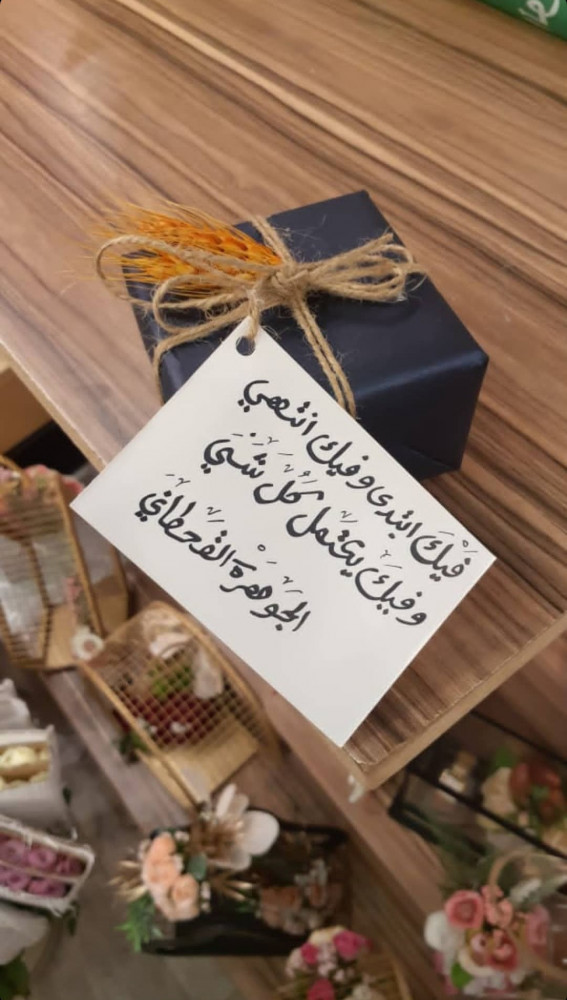 فيكَ ابتدى وفيك انتهي
وفيكَ يكتمل كُل شَيْ
الجَوْهرة القحطاني